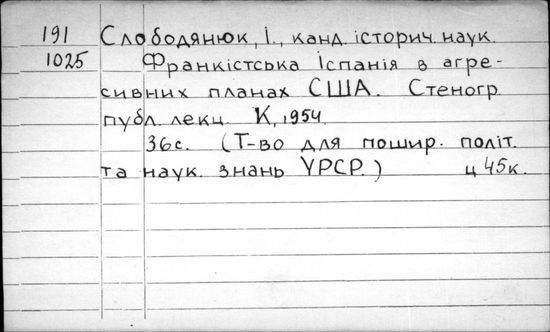 191 Слободянюк, І., канд. історич. наук.
1025 Франкістська Іспанія в агре-
сивних планах США. Стеногр.
публ. лекц. К, 1954.
36с. (Т-во для пошир. політ.
та наук. знань УРСР.) ц 45к.